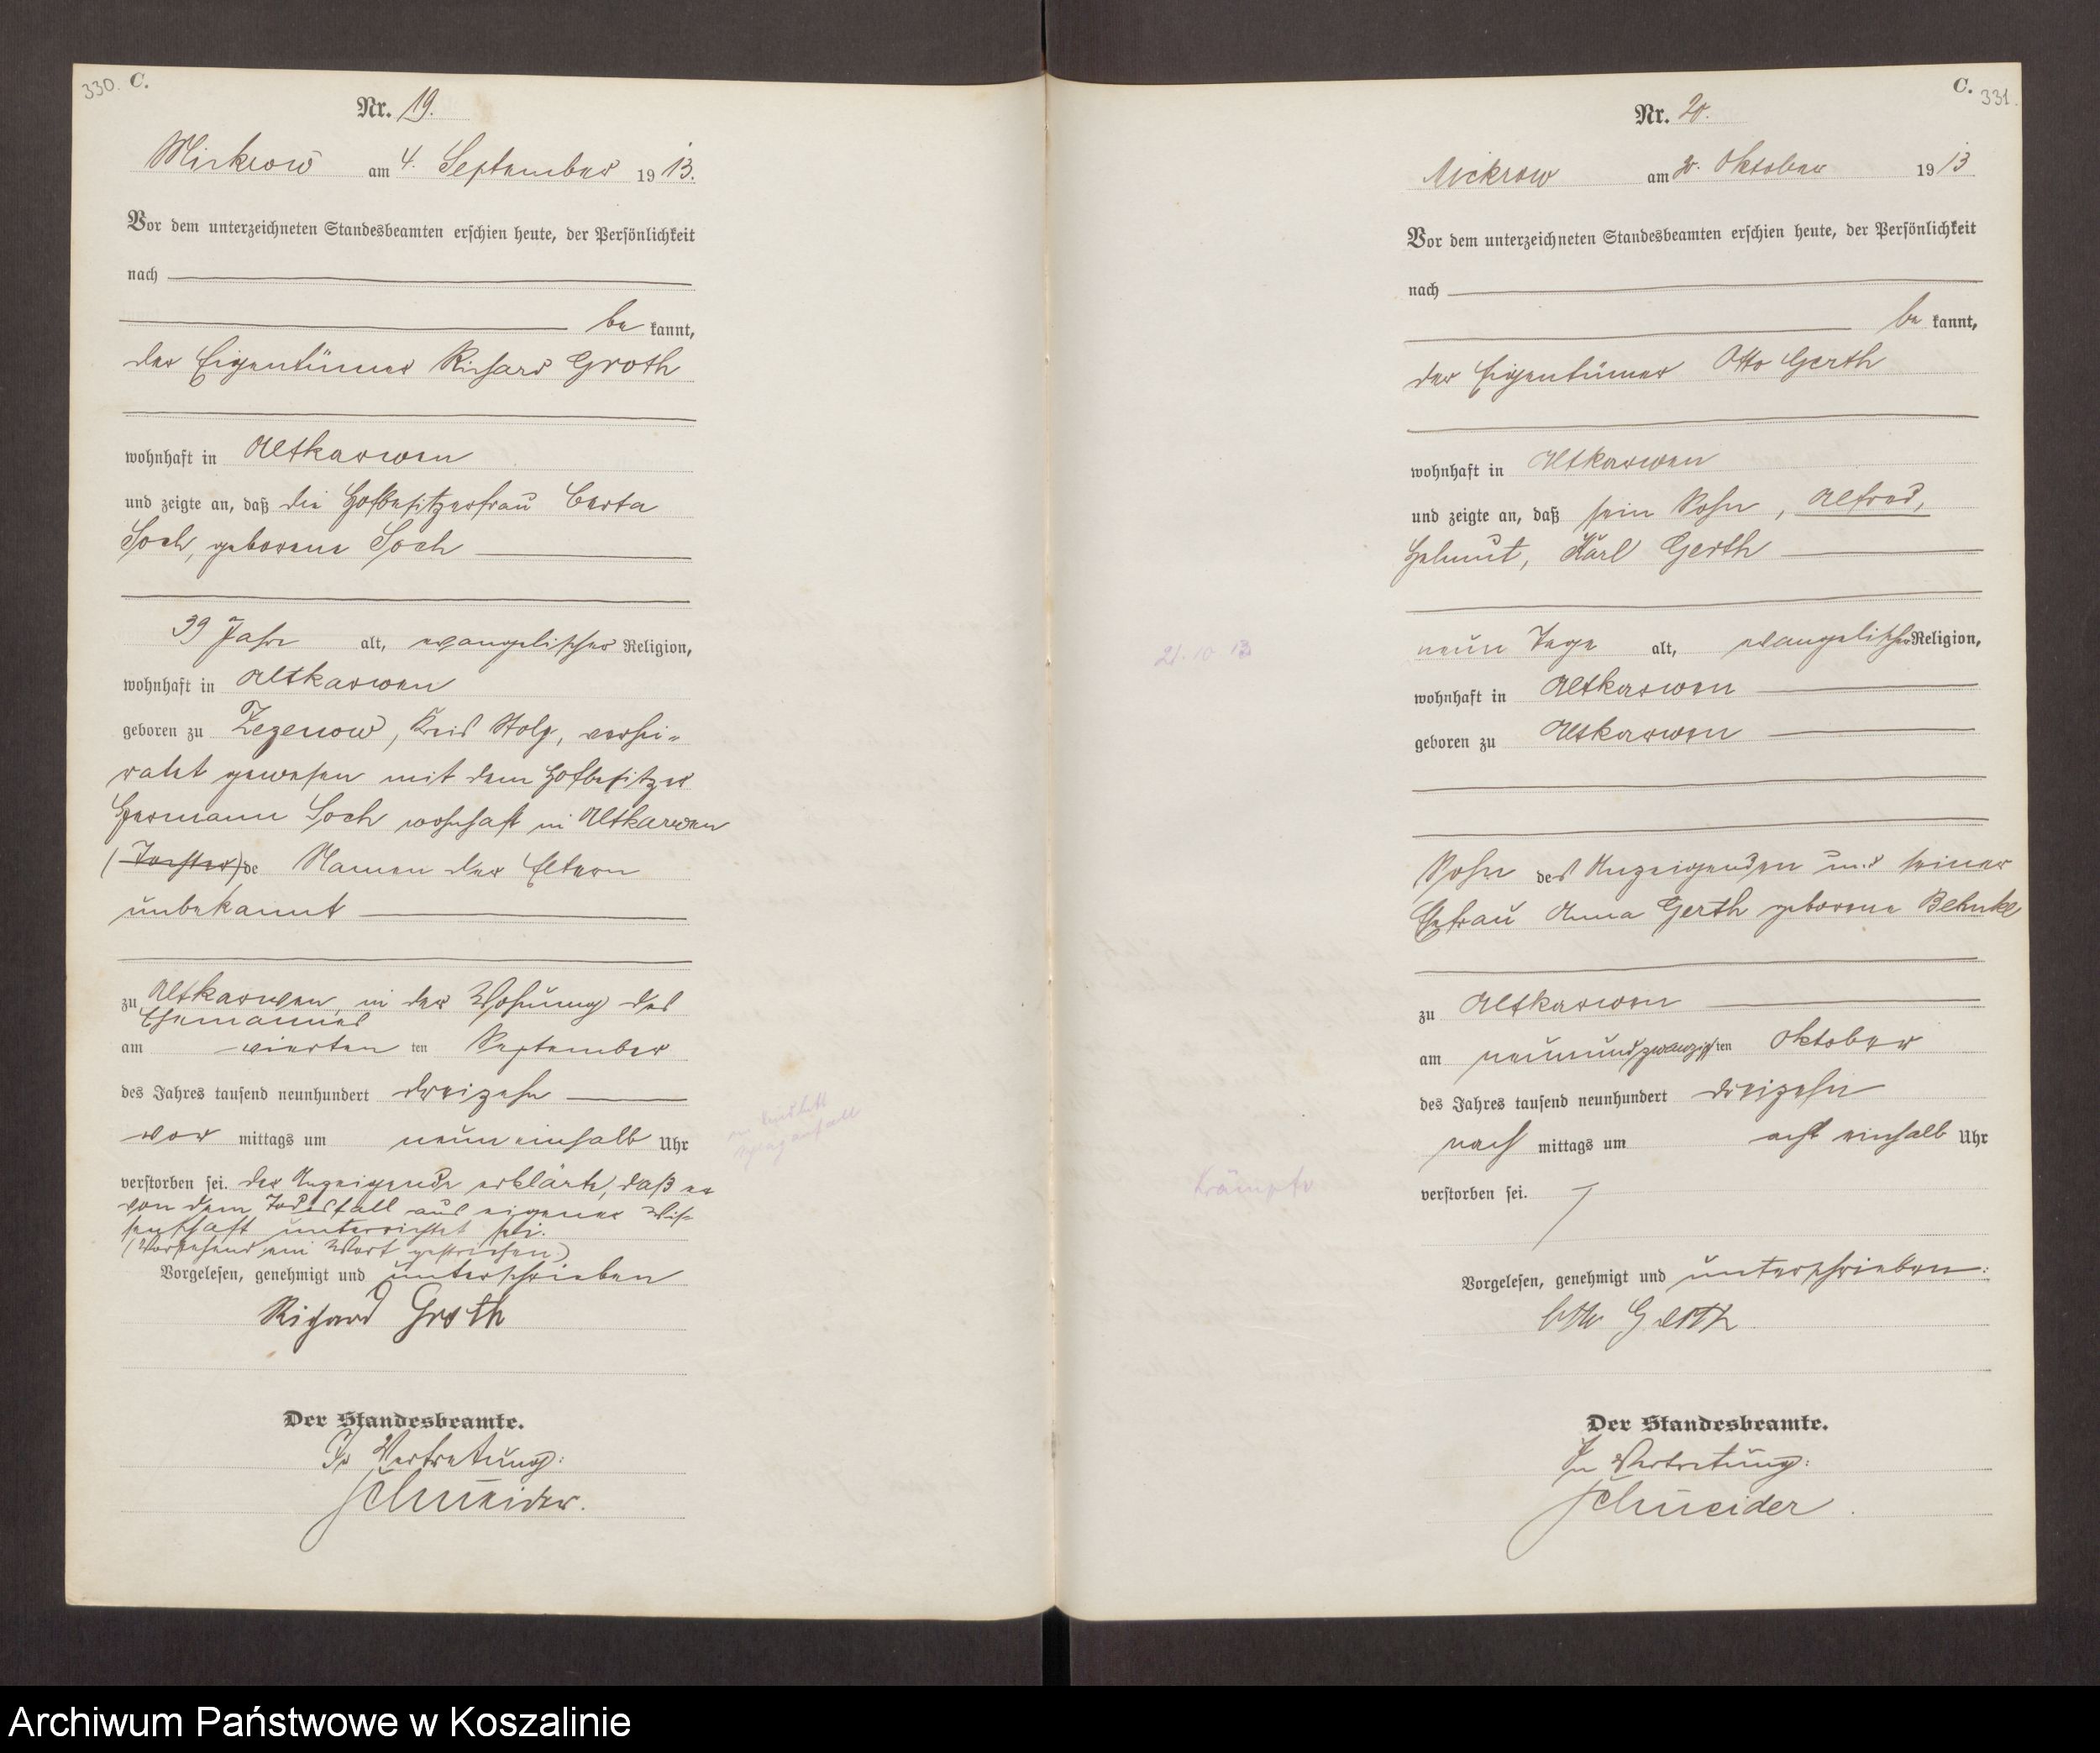 330. C.
Nr. 19.
Mickrow am 4. September 1913.
Vor dem unterzeichneten Standesbeamten erschien heute, der Persönlichkeit
nach
be kannt,
der Eigentümer Richard Groth
wohnhaft in Altkarwen
und zeigte an, daß die Hofbesitzerfrau Berta
Joch, geborene Joch
39 Jahre alt, evangelischer Religion,
wohnhaft in Altkarwen
geboren zu Zezenow, Kreis Stolp, verhei-
ratet gewesen mit dem Hofbesitzer
Hermann Joch wohnhaft in Altkarwen
(Tochter) de Namen der Eltern
unbekannt
zu Altkarwen, in der Wohnung des
Ehemannes
am vierten ten September
des Jahres tausend neunhundert dreizehn
vor mittags um neun einhalb Uhr
verstorben sei. Der Anzeigende erklärte, daß er
von dem Todesfall aus eigener Wis-
senschaft unterrichtet sei.
(Vorstehend ein Wort gestrichen.)
Vorgelesen, genehmigt und unterschrieben
Richard Groth
Der Standesbeamte.
In Vertretung:
Schneider.
C. 331.
Nr. 20.
Mickrow am 20. Oktober 1913
Vor dem unterzeichneten Standesbeamten erschien heute, der Persönlichkeit
nach
be kannt,
der Eigentümer Otto Gerth
wohnhaft in Altkarwen
und zeigte an, daß sein Sohn, Alfred,
Helmut, Karl Gerth
neun Tage alt, evangelischer Religion,
wohnhaft in Altkarwen
geboren zu Altkarwen
21.10 13
Sohn des Anzeigenden und seiner
Ehefrau Anna Gerth geborene Behnke
zu Altkarwen
am neunundzwanzigsten Oktober
des Jahres tausend neunhundert dreizehn
nach mittags um acht einhalb Uhr
verstorben sei.
Krämpfe
Vorgelesen, genehmigt und unterschrieben:
Otto Gerth
Der Standesbeamte.
In Vertretung:
Schneider.
Archiwum Państwowe w Koszalinie